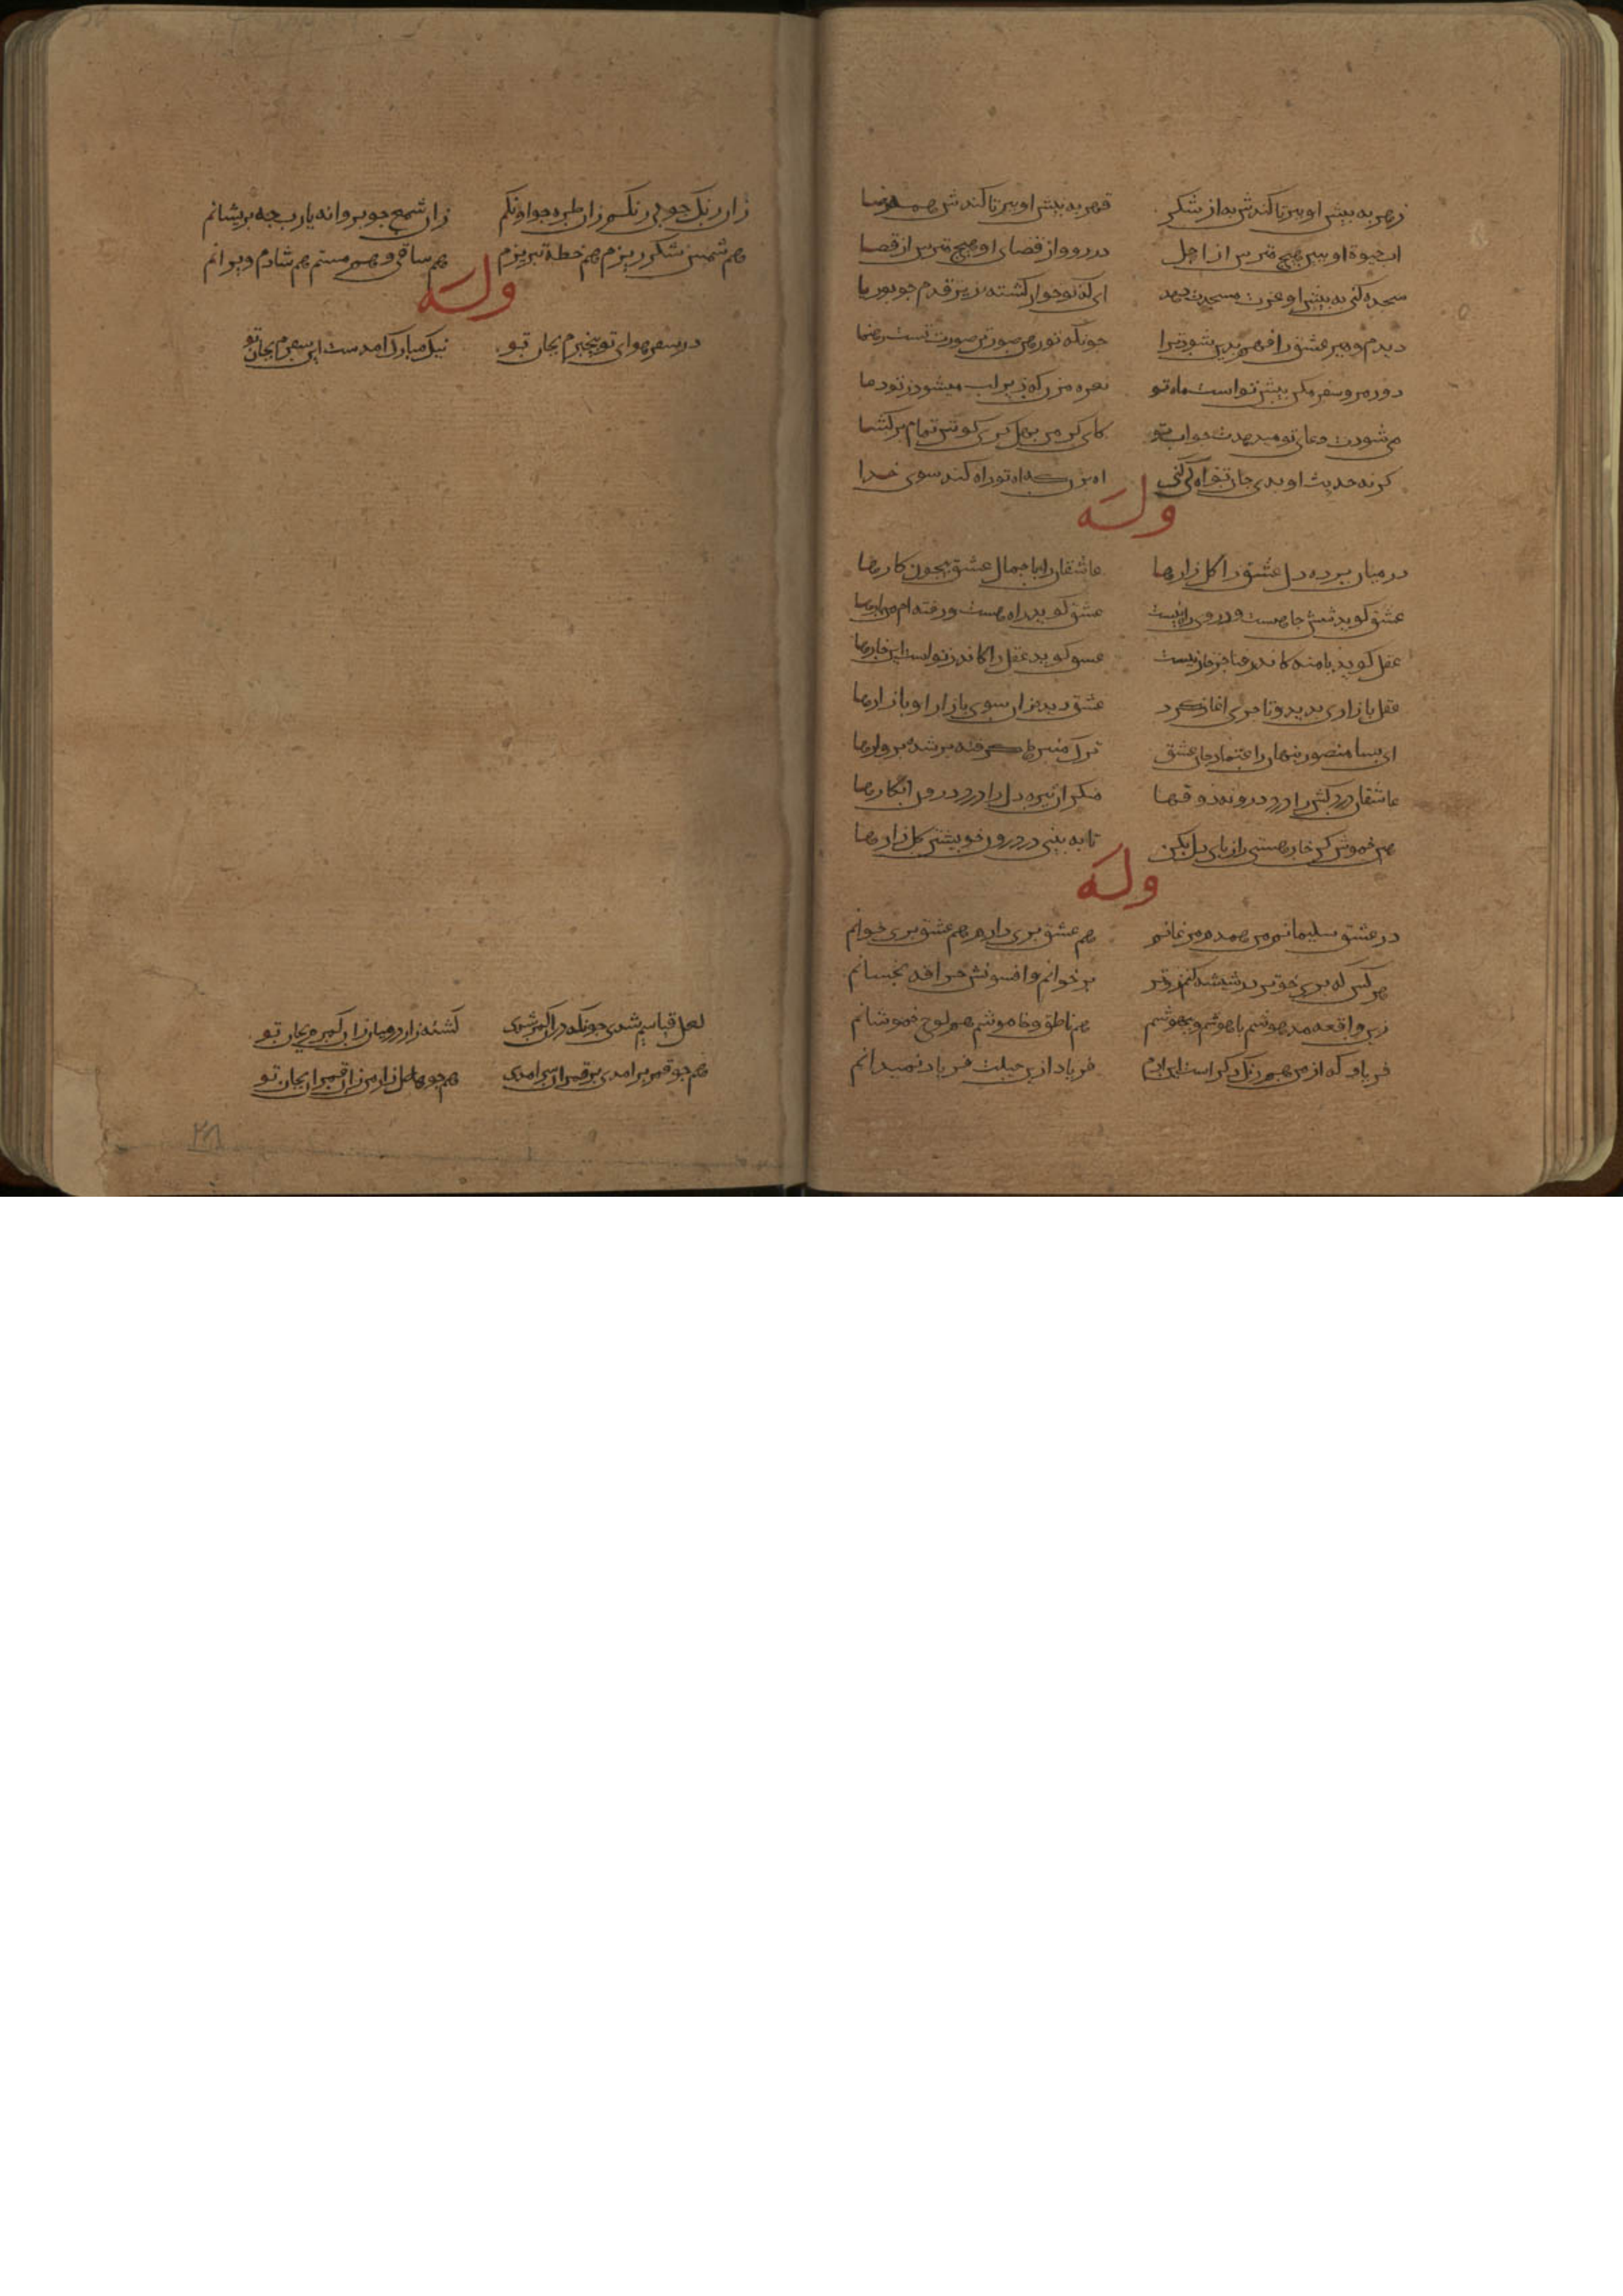 زهر به پیش او ببر تا کندش به از شکر قهر به پیش او ببر تا کندش همه رضا
آب حیوة او ببین هیچ مترس از اجل در دو واز قضای او هیچ مترس از قضا
سجده کنی به پیش او عزت مسجدت دهد ای که تو خوار کشته زیر قدم جو بوریا
دیدم و هیر عشق را فهم بدیر شود ترا جونکه تو رهن صورتی صورت تست رهنما
دور مرو سفر مکن پیش تو است ماه تو نعره مزن که زیر لب میشود ز تو دعا
می شود دعای تو میدهدت جواب تو کای کر من بهل کری کوش تمام برکشا
کرنه حدیث او بدی جان تو آه کی کنی اه بزن که اه تو راه کند سوی خدا
وله
در میان برده دل عشق را کل زارها عاشقان را با جمال عشق بیجون کارها
عشق کوید شش جا هست و در وی راه نیست عشق کوید راه هست و رفته ام من بارها
عقل کوید با منه کاندر فنا جز خار نیست عسق کوید عقل را کاندر تو است این خارها
عقل بازاری بدید و تاجری اغاز کرد عشق دیده زان سوی بازار او بازارها
ای بسا منصور بنهان را اعتماد جان عشق ترک منبرها کرفته بر شده بر دارها
عاشقان درد کش را در درونه ذوقها منکران تیره دل را در درون انکارها
هین خموش کن خار هستی را ز بای دل بکن تا به بینی در درون خویشتن کل زارها
وله
در عشق سلیمانی من همدم مرغانم هم عشق بری دارم هم عشق بری خوانم
هر کس که بری خو تر در شیشه کنم زوتر بر خوانم و افسونش حراقه بجنبانم
زین واقعه مدهوشم با هوشم و بیهوشم هم ناطق و خاموشم هم لوح خموشانم
فریاد که از من هم رنک دکر است این دم فریاد از این حیلت فریاد نمیدانم
زان رنک جو بی رنکم زان طره جو اونکم زان شمع جو بروانه یا رب چه بریشانم
هم شمس شکر ریزم هم خطه تبریزم هم ساقی و هم مستم هم شادم و ویرانم
وله
در سفر هوای تو بیخبرم بجان تو نیک مبارک امدست این سفرم بجان تو
لعل قبا سیم شدی جونکه در ان کمر شدی کشته زار در میان زان کمرم بجان تو
هم جو قمر بر امدی بر قمران سر امدی هم جو هلال زار من زان قمرم بجان تو